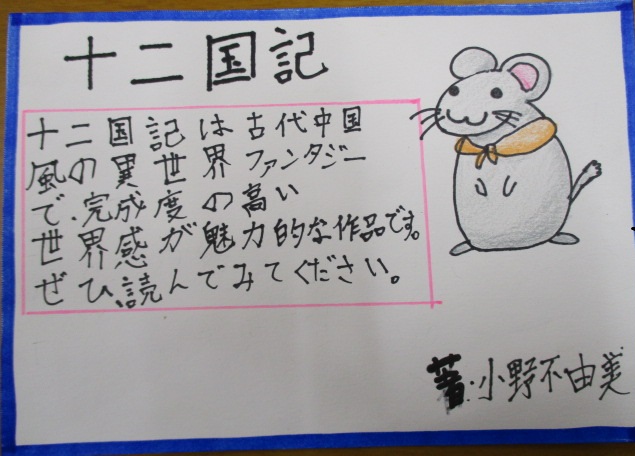 十二国記
十二国記は古代中国
風の異世界ファンタジー
で、完成度の高い
世界感が魅力的な作品です。
ぜひ、読んでみてください。
著:小野不由美